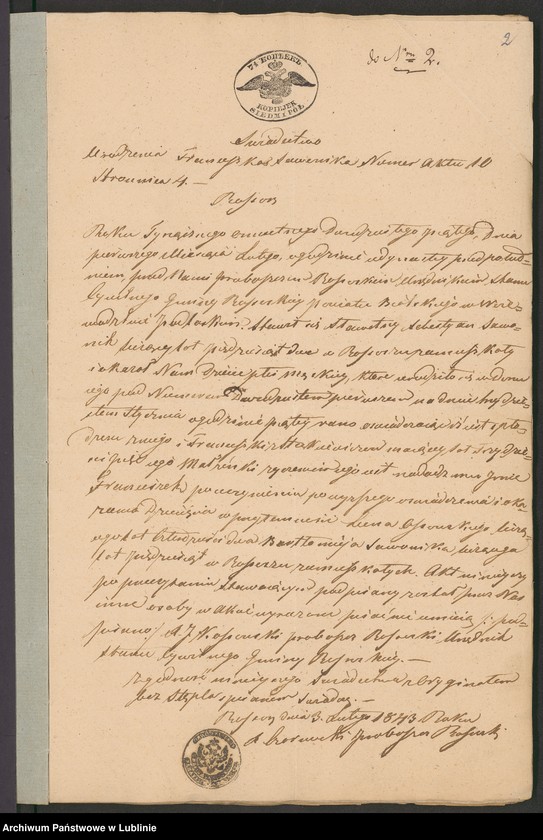 2
do Nru 2.
7½ КОПѢЕКЪ
KOPIEJEK
SIEDM I PÓŁ
Świadectwo
Urodzenia Franciszka Sawonika Numer Aktu 10
Stronnica 4. —
Rossosz
Roku Tysiącznego ośmsetnego Dwudziestego piątego, Dnia
pierwszego Miesiąca Lutego, o godzinie jedynastej przed połud-
niem, przed Nami proboszczem Rossoskim Urzędnikiem Stanu
Cywilnego Gminy Rossoskiej powiatu Bialskiego w Woje-
wództwie Podlaskim. Stawił się Stawetny Sebestyan Sawo-
nik liczący lat pięćdziesiąt dwa w Rossoszu zamieszkały
i okazał Nam dziecię płci męzkiej, które urodziło się w domu
jego pod Numerem Dwudziestem pierwszem na dniu trzydzie-
stem Stycznia o godzinie piątej rano oświadczając iż jest spło-
dzone z niego i Franciszki z maiącey lat trzydzie-
ści pięć jego Małżonki życzeniem jego jest nadać mu imie
Franciszek po uczynieniu powyższego oświadczenia i oka-
zaniu dziecięcia w przytomności liczą-
cego lat czterdzieści dwa Bartłomieja Sawonika, liczącego
lat pięćdziesiąt w Rossoszu zamieszkałych. Akt niniejszy
po przeczytaniu Stawającym podpisany został przez Nas
inne osoby w Akcie wyrażone pisać nie umieją /: pod-
pisano / X. J. Kossowski proboszcz Rossoski Urzędnik
Stanu Cywilnego Gminy Rossoskiej. —
Zgodność niniejszego Świadectwa z Oryginałem
bez Stępla spisanem świadczę. —
Rossosz dnia 3. Lutego 1843 Roku
X. proboszcz Rossoski
Archiwum Państwowe w Lublinie